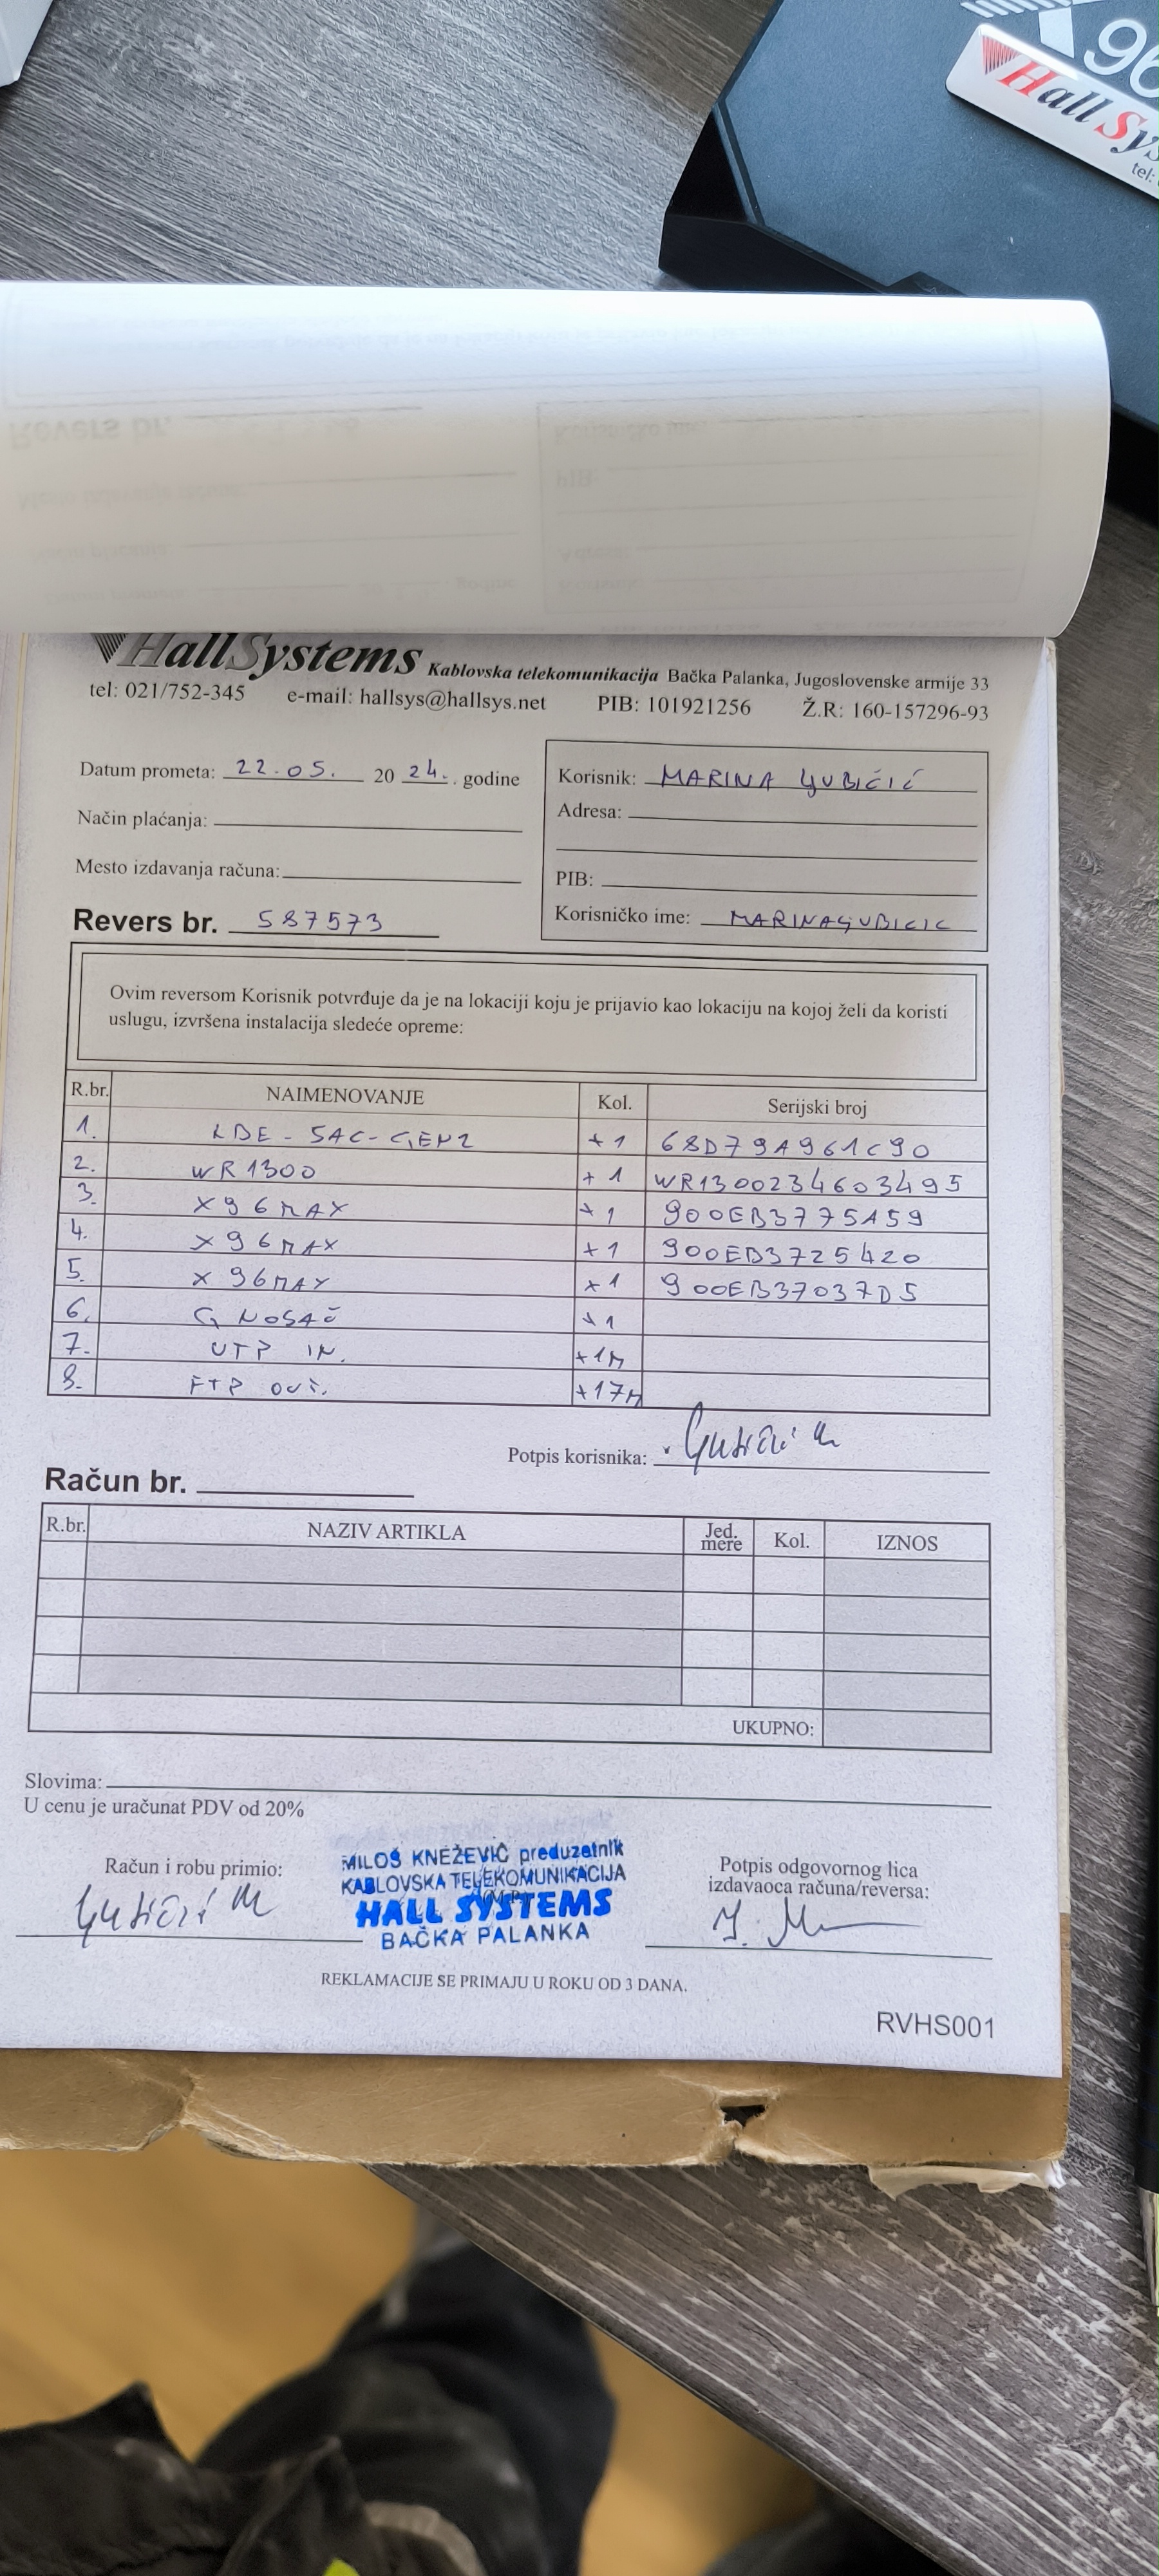 X96
Hall Sys
tel:
HallSystems Kablovska telekomunikacija Bačka Palanka, Jugoslovenske armije 33
tel: 021/752-345 e-mail: hallsys@hallsys.net PIB: 101921256 Ž.R: 160-157296-93
Datum prometa: 22.05. 20 24. . godine
Način plaćanja:
Mesto izdavanja računa:
Revers br. 587573
Korisnik: MARINA LJUBIČIĆ
Adresa:
PIB:
Korisničko ime: MARINALJUBICIC
Ovim reversom Korisnik potvrđuje da je na lokaciji koju je prijavio kao lokaciju na kojoj želi da koristi
uslugu, izvršena instalacija sledeće opreme:
R.br. NAIMENOVANJE Kol. Serijski broj
1. LBE-5AC-GEN2 +1 68D79A961C90
2. WR1300 +1 WR1300234603495
3. X96MAX +1 900EB3775A59
4. X96MAX +1 900EB3725420
5. X96MAX +1 900EB37037D5
6. G NOSAČ +1
7. UTP IN. +1M
8. FTP OUT. +17M
Potpis korisnika: Ljubičić M
Račun br.
R.br. NAZIV ARTIKLA Jed. mere Kol. IZNOS
UKUPNO:
Slovima:
U cenu je uračunat PDV od 20%
Račun i robu primio:
Ljubičić M
MILOŠ KNEŽEVIĆ preduzetnik
KABLOVSKA TELEKOMUNIKACIJA
HALL SYSTEMS
BAČKA PALANKA
Potpis odgovornog lica
izdavaoca računa/reversa:
REKLAMACIJE SE PRIMAJU U ROKU OD 3 DANA.
RVHS001